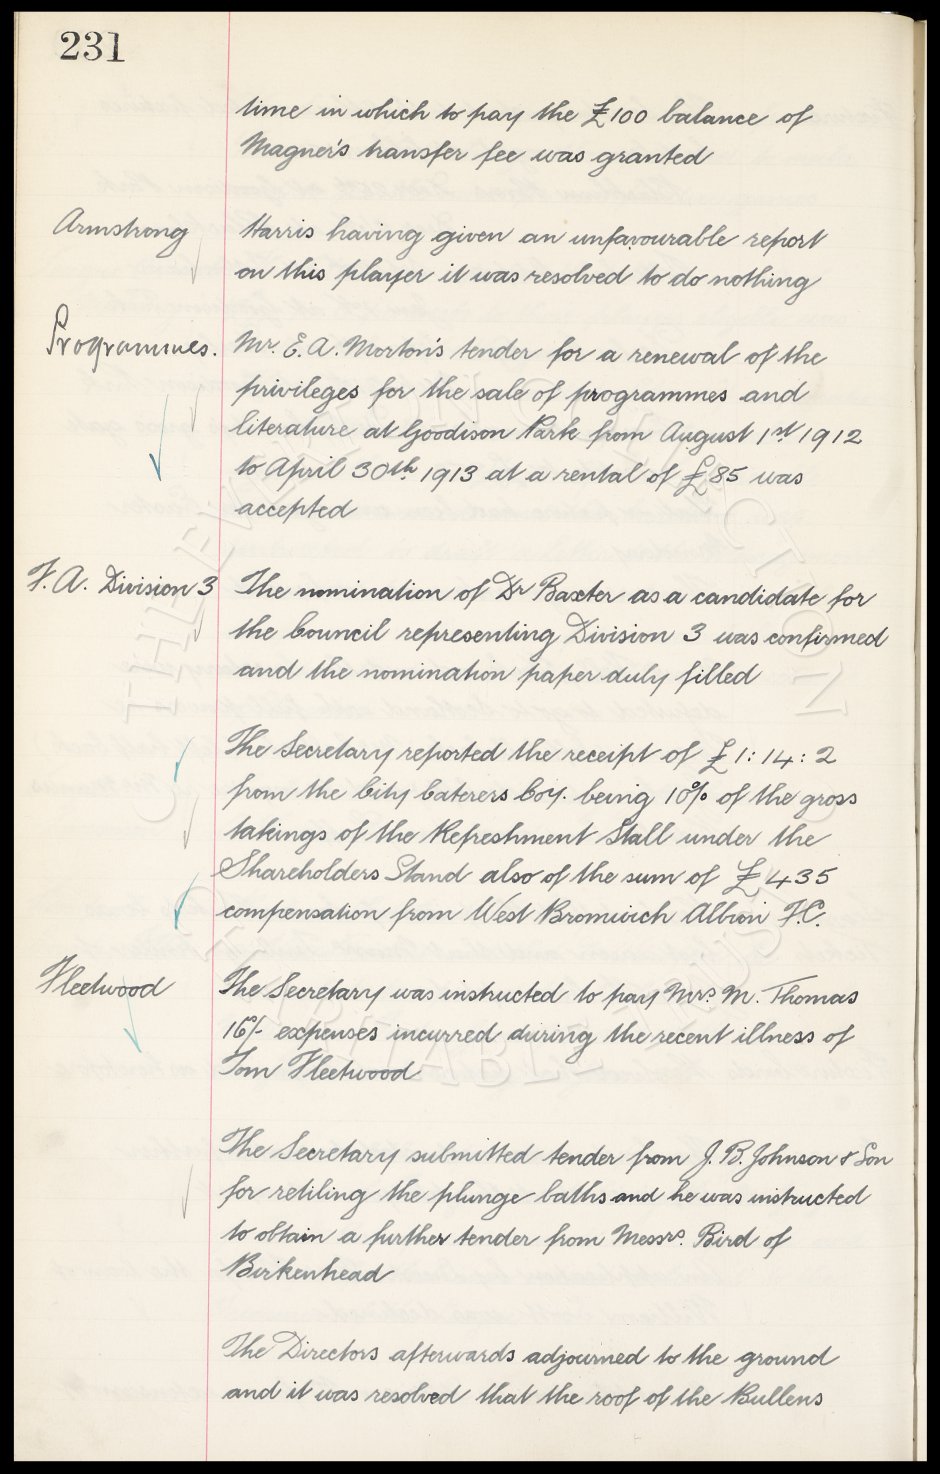 231
time in which to pay the £100 balance of
Magner's transfer fee was granted
Armstrong
Harris having given an unfavourable report
on this player it was resolved to do nothing
Programmes.
Mr. E. A. Morton's tender for a renewal of the
privileges for the sale of programmes and
literature at Goodison Park from August 1st 1912
to April 30th 1913 at a rental of £85 was
accepted
F. A. Division 3
The nomination of Dr Baxter as a candidate for
the Council representing Division 3 was confirmed
and the nomination paper duly filled
The Secretary reported the receipt of £1:14:2
from the City Caterers Coy. being 10% of the gross
takings of the Refreshment Stall under the
Shareholders Stand also of the sum of £435
compensation from West Bromwich Albion F.C.
Fleetwood
The Secretary was instructed to pay Mrs. M. Thomas
16/- expenses incurred during the recent illness of
Tom Fleetwood
The Secretary submitted tender from J. B. Johnson & Son
for retiling the plunge baths and he was instructed
to obtain a further tender from Messrs. Bird of
Birkenhead
The Directors afterwards adjourned to the ground
and it was resolved that the roof of the Bullens
THE EVERTON COLLECTION
CHARITABLE TRUST